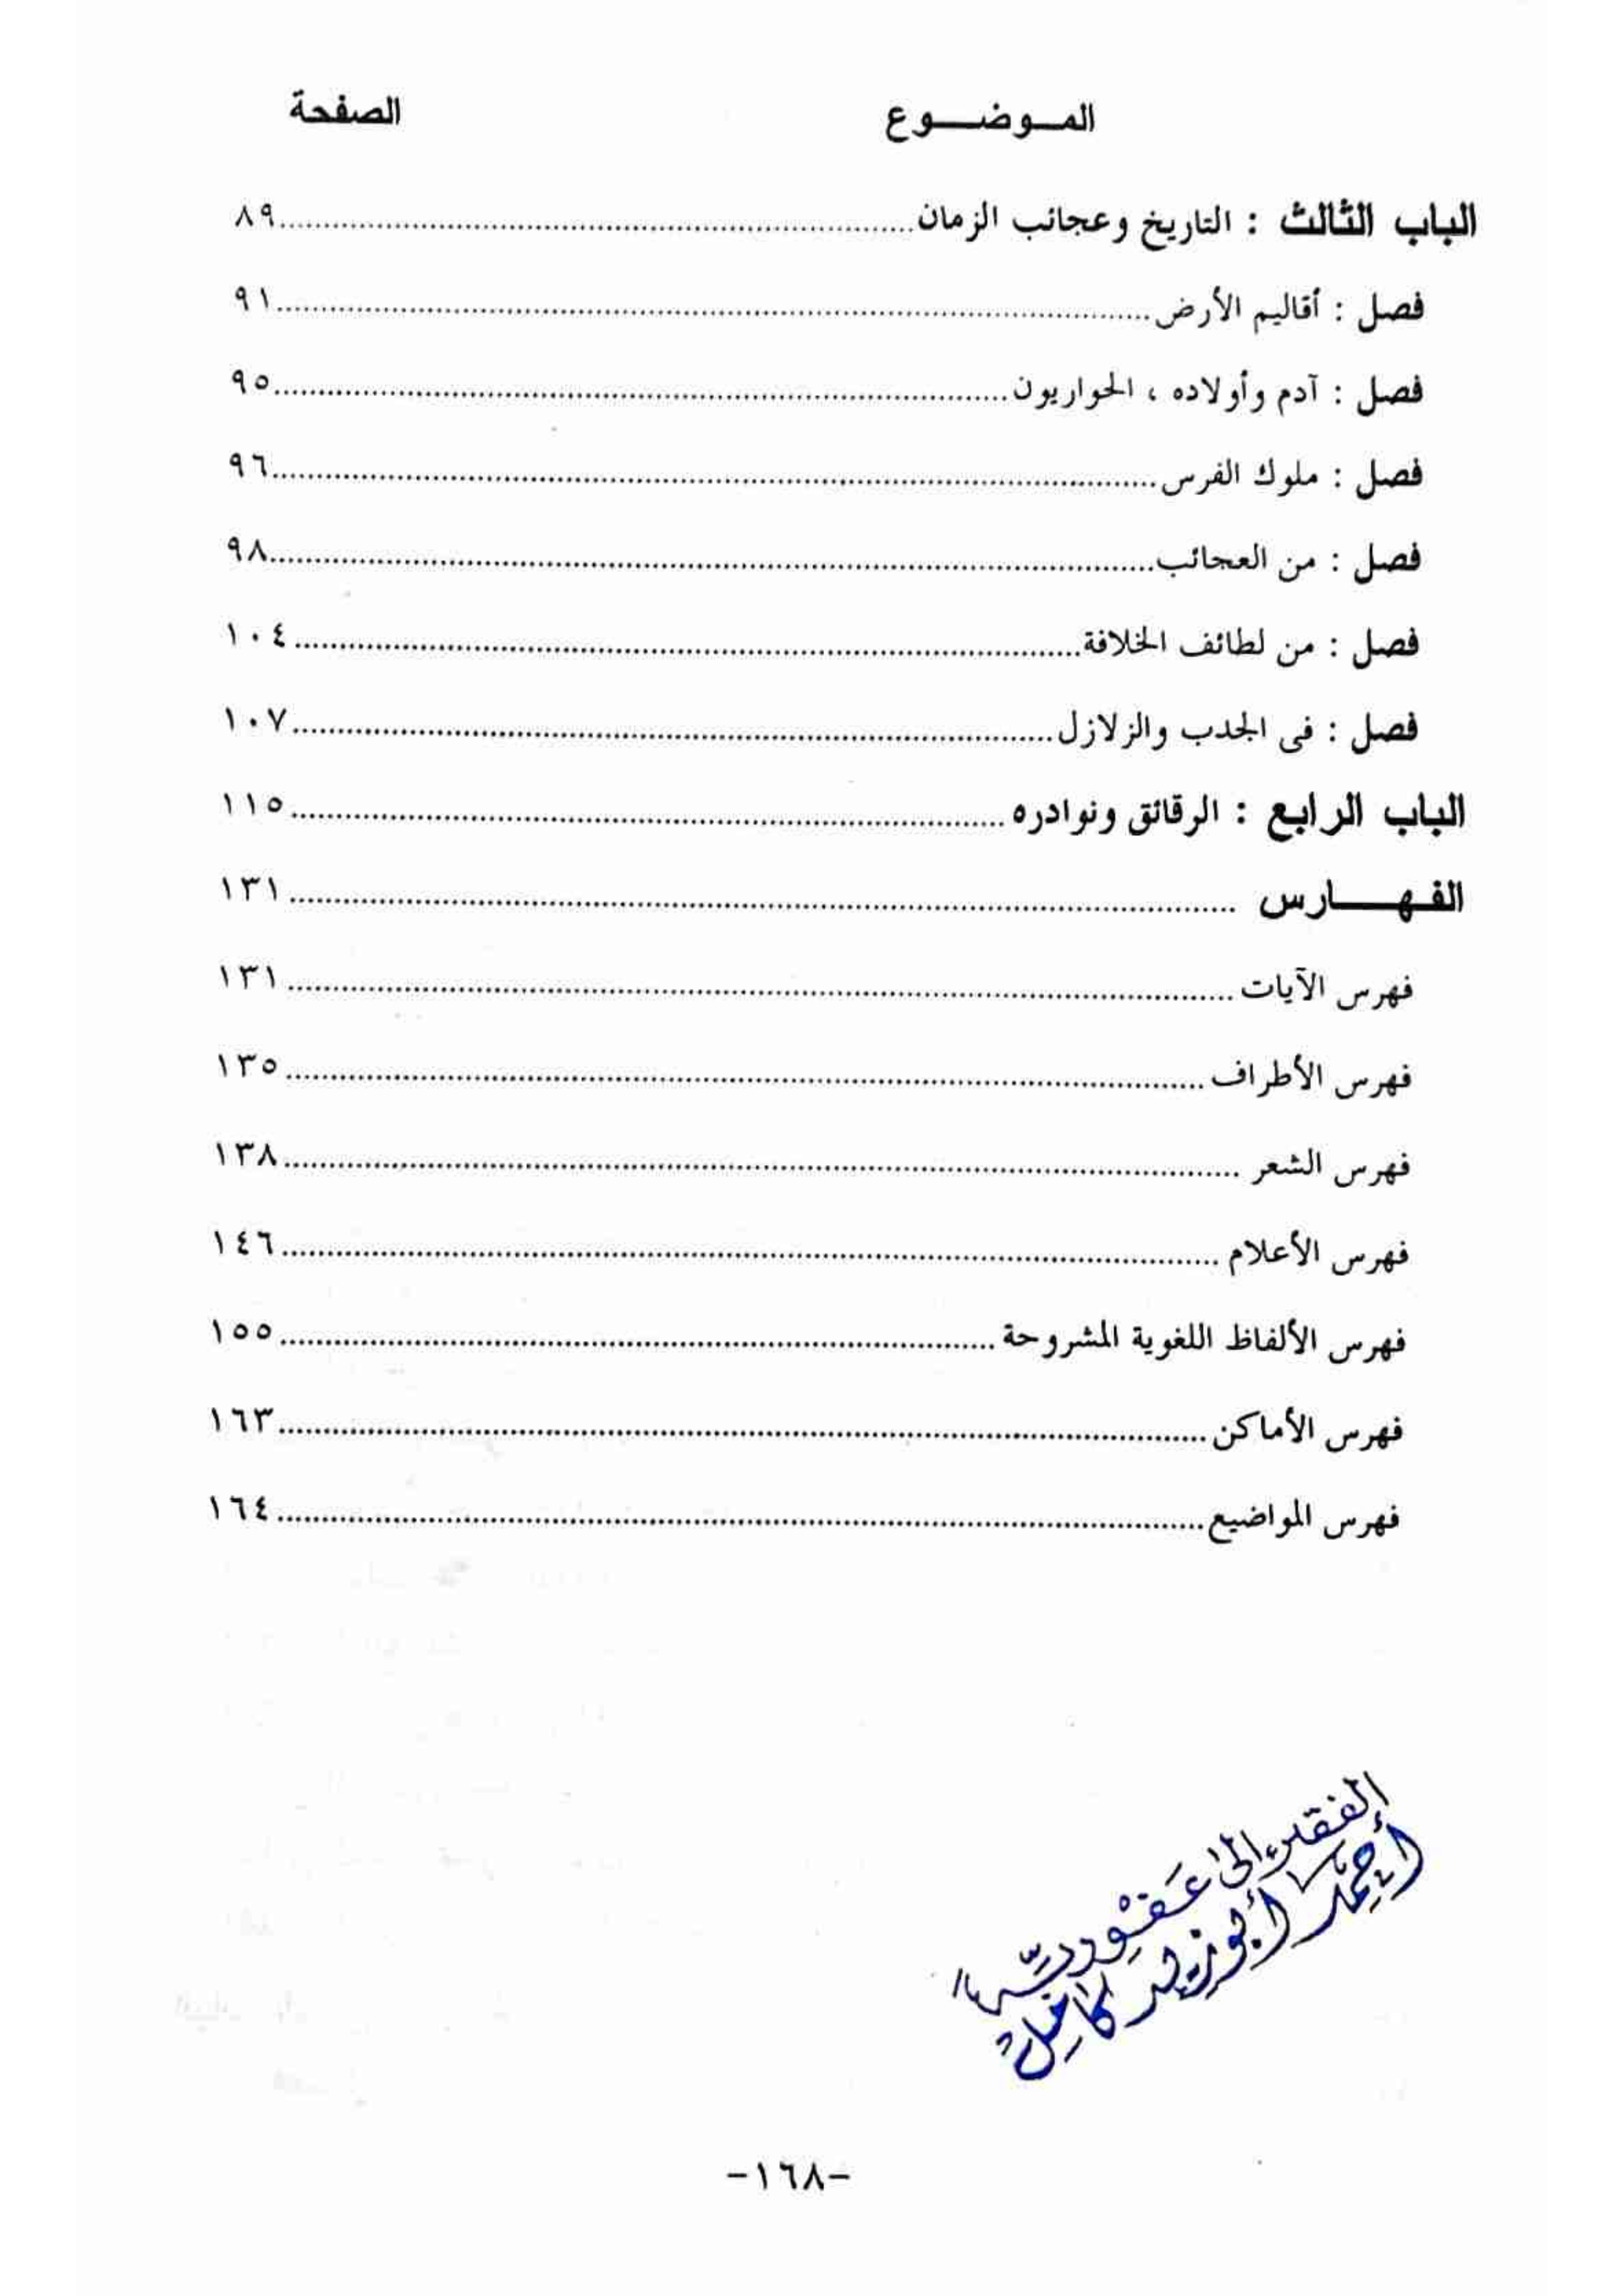 الموضوع الصفحة
الباب الثالث : التاريخ وعجائب الزمان ٨٩
فصل : أقاليم الأرض ٩١
فصل : آدم وأولاده ، الحواريون ٩٥
فصل : ملوك الفرس ٩٦
فصل : من العجائب ٩٨
فصل : من لطائف الخلافة ١٠٤
فصل : فى الجدب والزلازل ١٠٧
الباب الرابع : الرقائق ونوادره ١١٥
الفهارس ١٣١
فهرس الآيات ١٣١
فهرس الأطراف ١٣٥
فهرس الشعر ١٣٨
فهرس الأعلام ١٤٦
فهرس الألفاظ اللغوية المشروحة ١٥٥
فهرس الأماكن ١٦٣
فهرس المواضيع ١٦٤
الفقير إلى عَفْوِ ربِّه
أحمد أبوزيد كامل
-١٦٨-